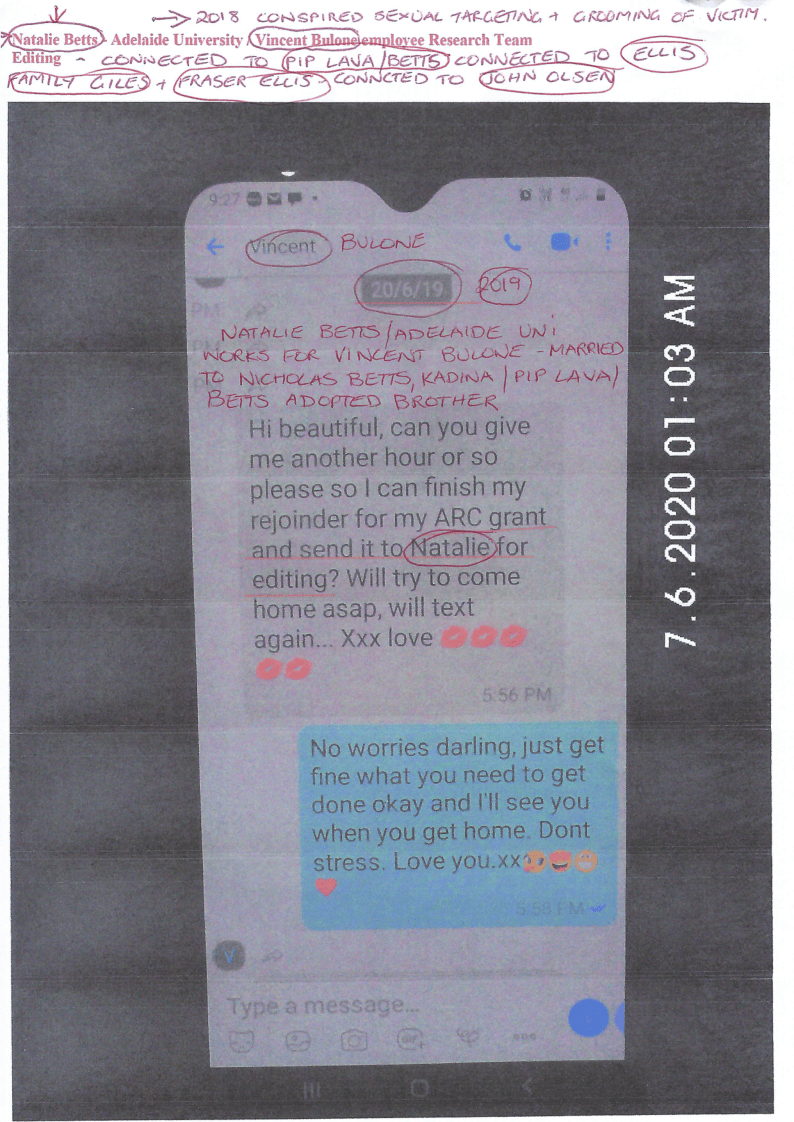 → 2018 CONSPIRED SEXUAL TARGETING + GROOMING OF VICTIM.
Natalie Betts - Adelaide University / Vincent Bulone employee Research Team
Editing - CONNECTED TO PIP LAVA/BETTS CONNECTED TO ELLIS
FAMILY GILES + FRASER ELLIS - CONNCTED TO JOHN OLSEN
9:27
Vincent BULONE
20/6/19 2019
PM
NATALIE BETTS/ADELAIDE UNI
WORKS FOR VINCENT BULONE - MARRIED
TO NICHOLAS BETTS, KADINA / PIP LAVA/
BETTS ADOPTED BROTHER
Hi beautiful, can you give
me another hour or so
please so I can finish my
rejoinder for my ARC grant
and send it to Natalie for
editing? Will try to come
home asap, will text
again... Xxx love 💋💋💋
💋💋
5:56 PM
No worries darling, just get
fine what you need to get
done okay and I'll see you
when you get home. Dont
stress. Love you.xx
5:58 PM
V
Type a message...
GIF
7.6.2020 01:03 AM